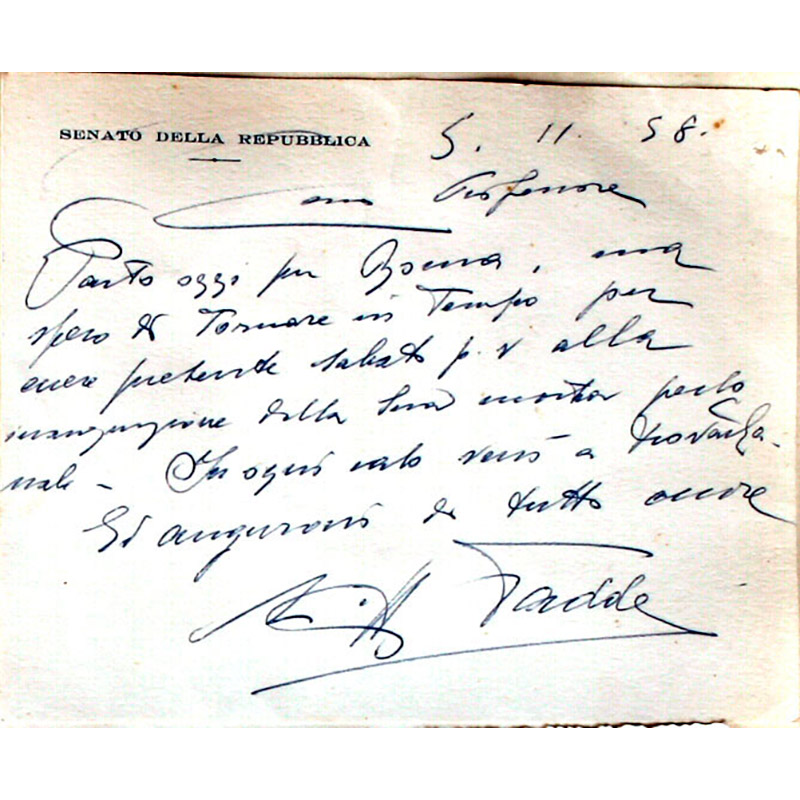 SENATO DELLA REPUBBLICA
5. 11. 58.
Caro Professore
Parto oggi per Roma, ma
spero di tornare in tempo per
essere presente sabato p.v alla
inaugurazione della Sua mostra perso
nale - In ogni caso verrò a trovarla -
Gli auguroni di tutto cuore
Taddei